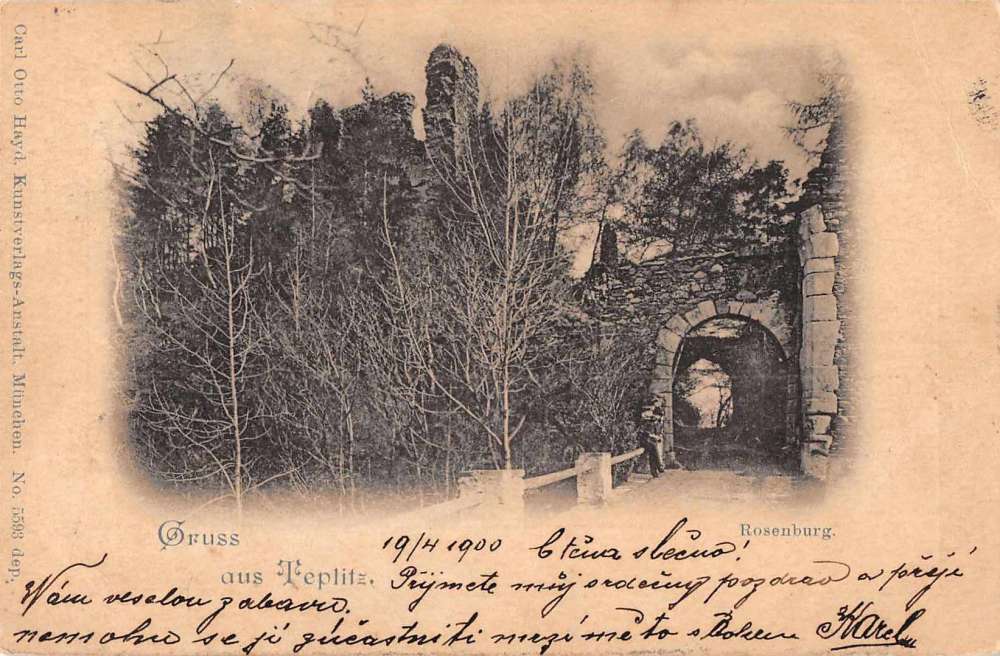 Carl Otto Hayd. Kunstverlags-Anstalt. München. No. 5593 dep.
Rosenburg.
Gruss
aus Teplitz.
19/4 1900 Ctěná slečno!
Přijmete můj srdečný pozdrav a přeji
Vám veselou zábavu.
nemohu se jí zúčastniti mezí
s Bohem Karel